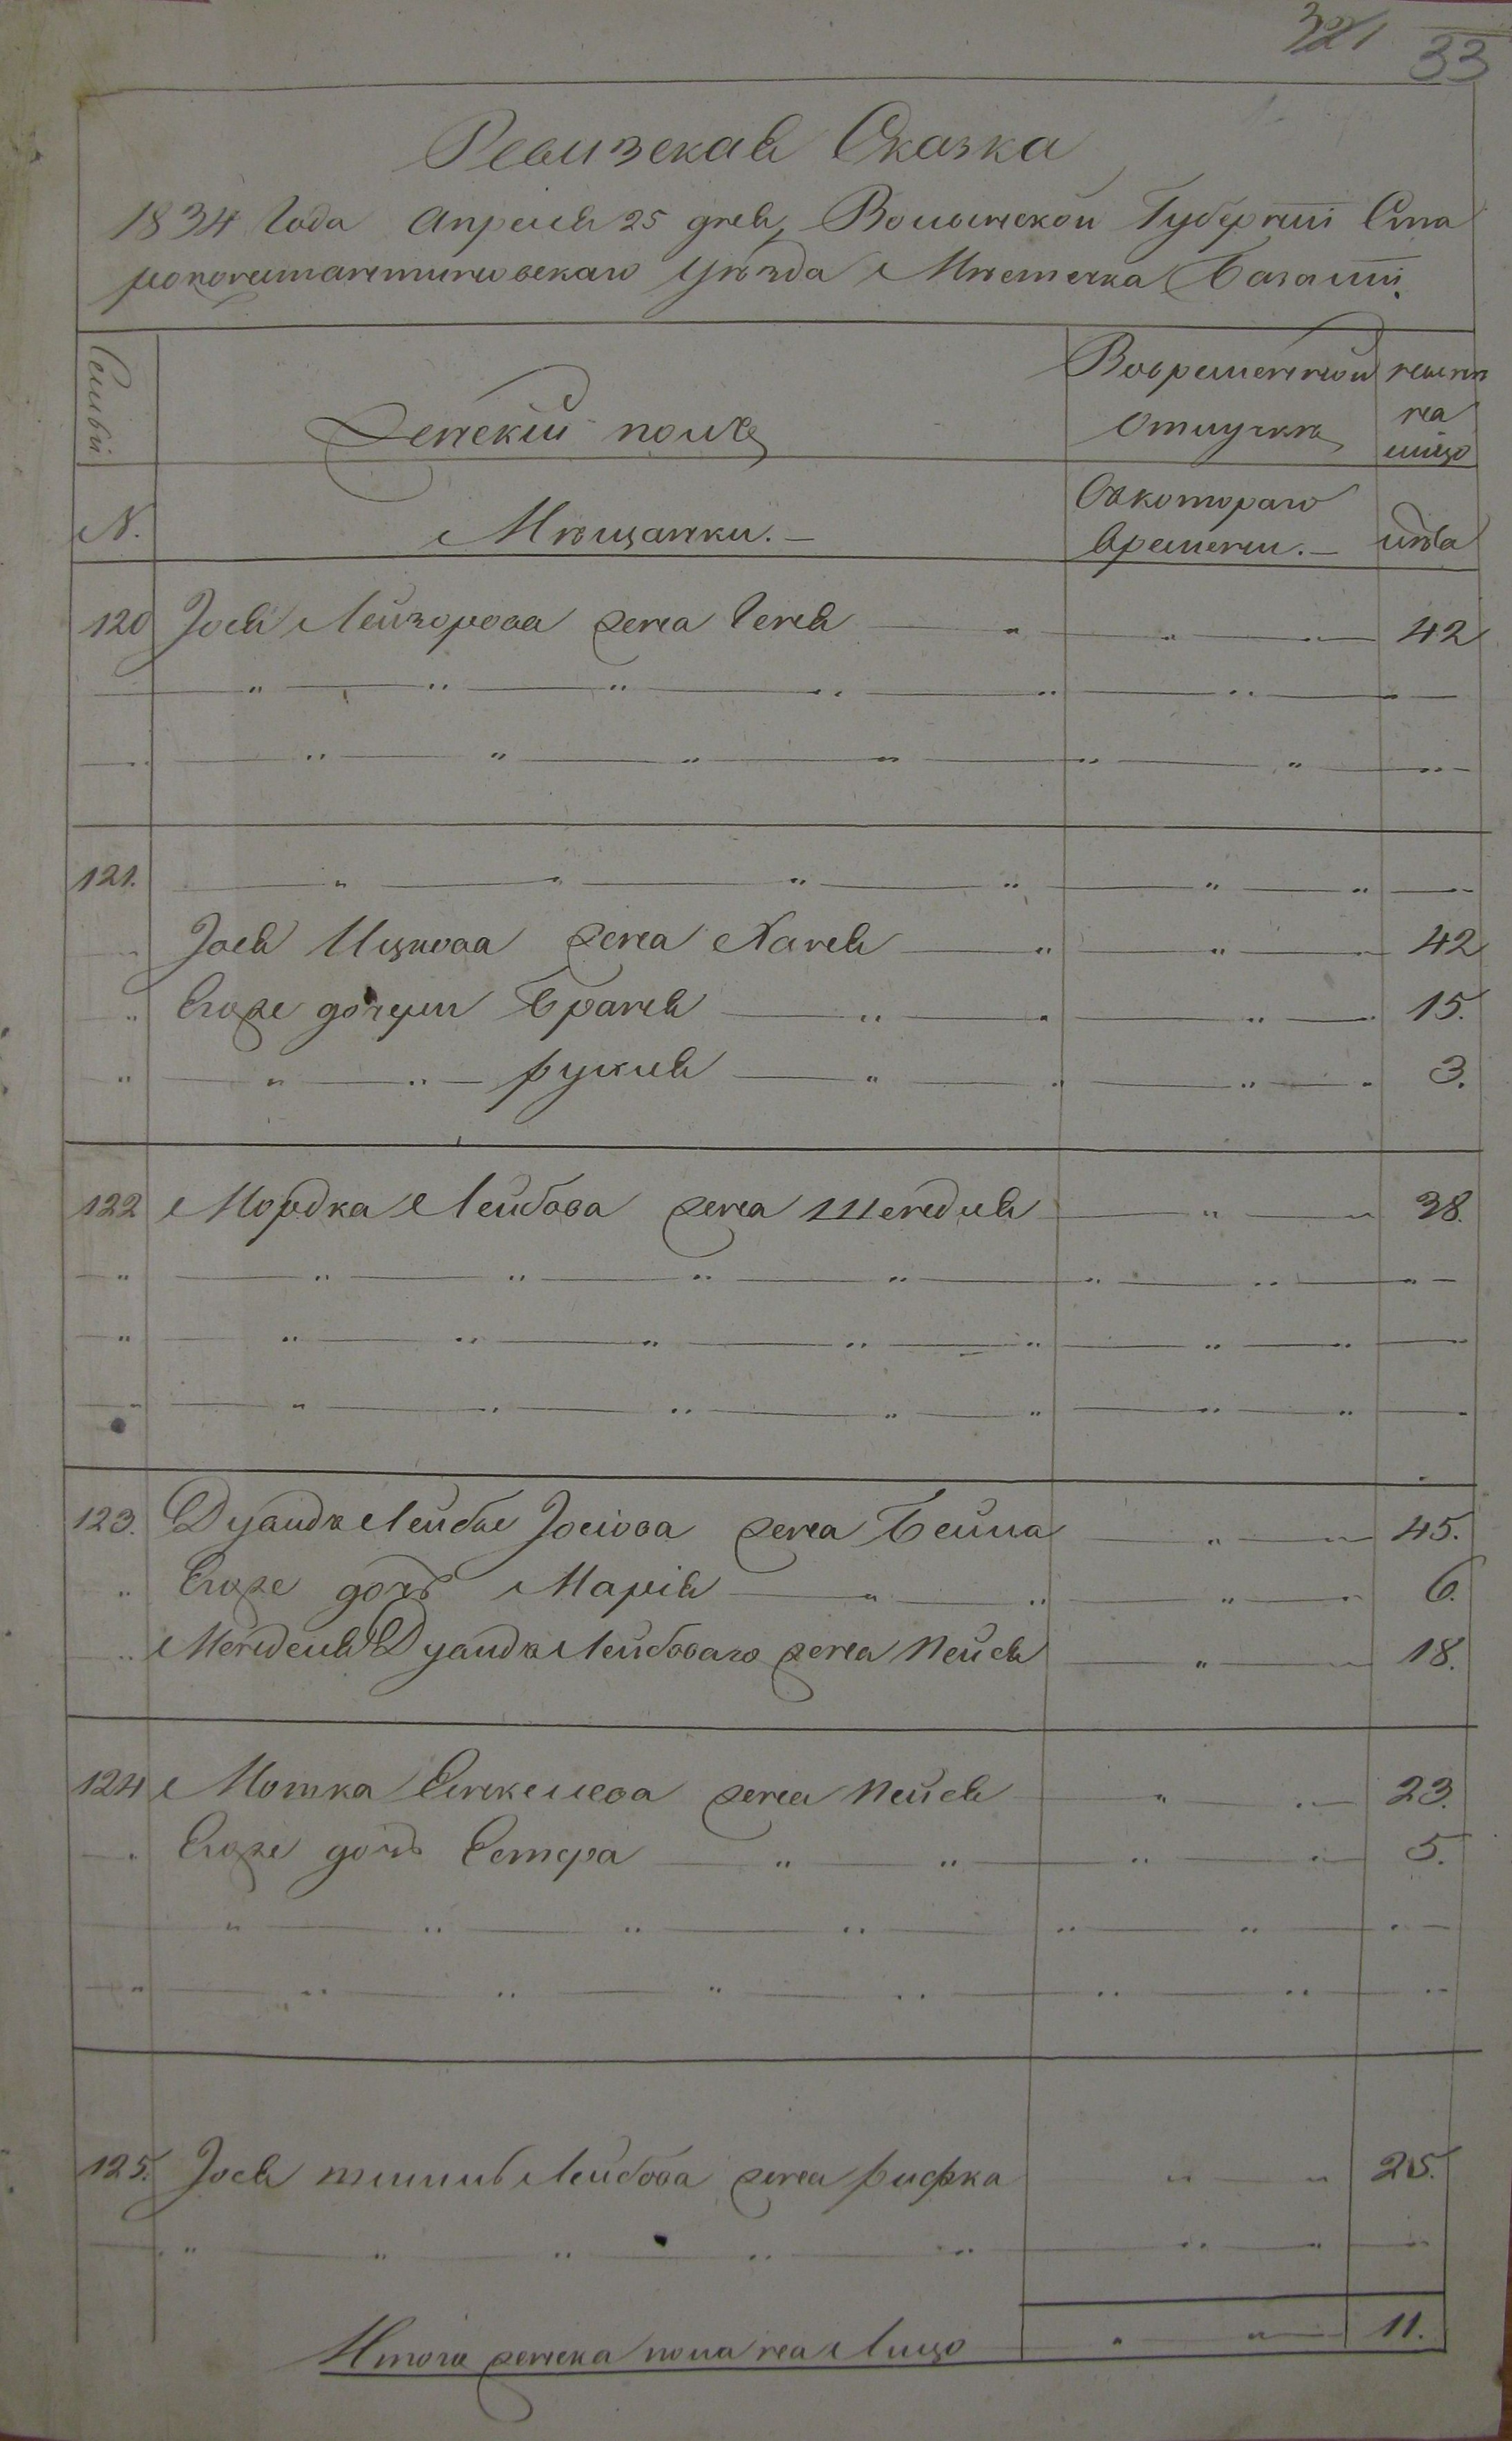 321 33
Ревизская Сказка
1834 Года Апреля 25 дня, Волынской Губернии Ста
роконстантиновскаго Уѣзда Мѣстечка Базалии.
Семьи
Женский полъ
Вовременной
отлучкѣ
на
лицо
N.
Мѣщанки. —
Съкотораго
времени. —
лѣта
120 Іося Лейзорова жена Геня — " — " — 42
121.
Іося Ицкова жена Хання — " — " — 42
Егоже дочери Браня — " — " — 15.
" — " — Рухля — " — " — 3.
122 Мордка Лейбова жена Шендля — " — 38.
123. Дувидъ Лейбы Іосіова жена Бейла — " — 45.
" Егоже дочь Марія — " — " — 6.
" Менделя Дувидъ Лейбоваго жена Пейся — " — 18.
124 Мотка Енкелева жена Пейся — " — 23.
" Егоже дочь Естера — " — " — 5.
125. Іося Лейбова жена Рифка " — " 25.
Итого женска пола на Лицо " — " — 11.